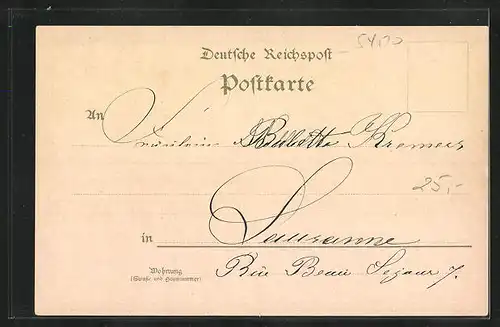 54170
Deutsche Reichspost
Postkarte
An Fräulein Babette Kremers
25,-
in Lausanne
Wohnung
(Straße und Hausnummer)
Rue Beau Sejour 7.